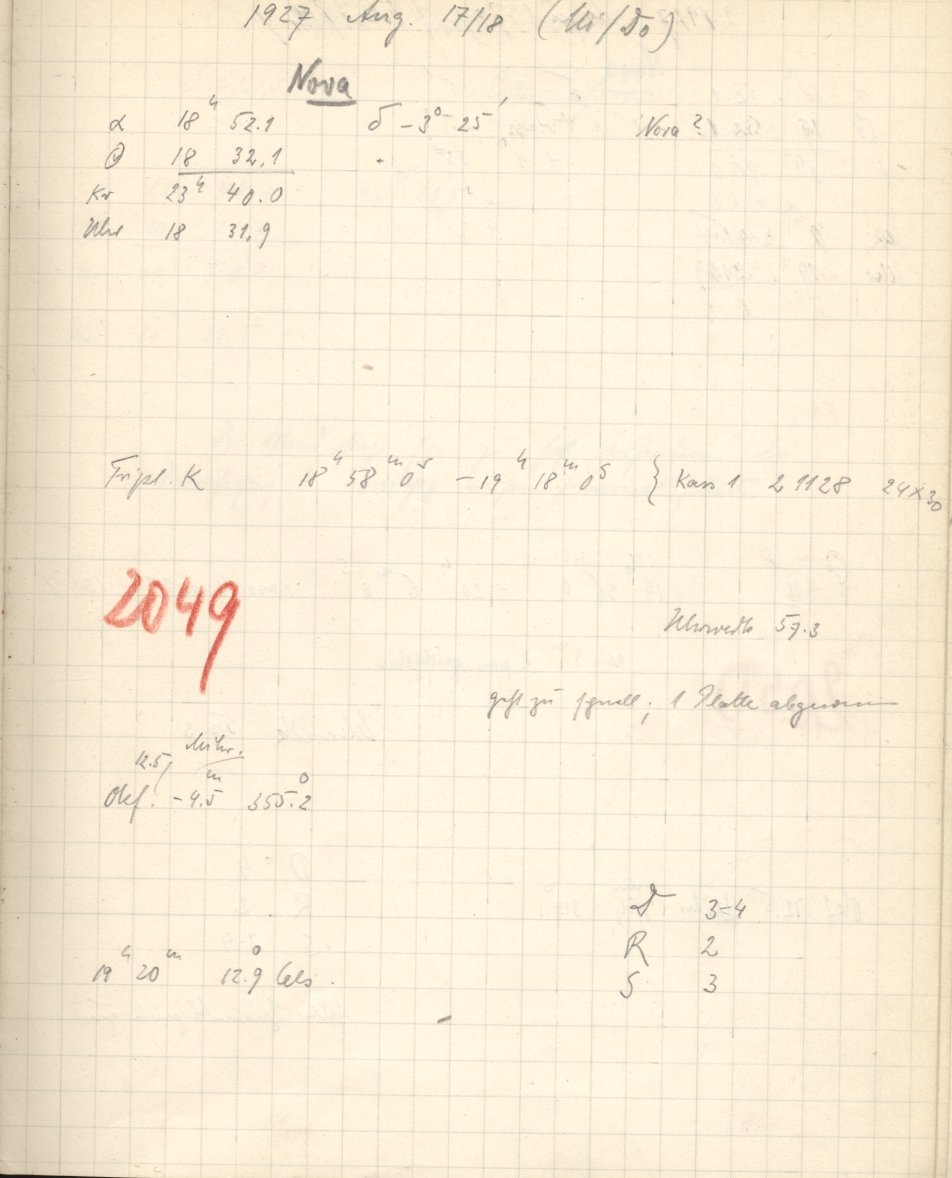 1927 Aug. 17/18 (Mi/Do)
Nova
α 18h 52.1 δ -3° 25' Nova?
18 32.1
23h 40.0
Uhr 18 31.9
Tripl. K 18h 58m 0s - 19h 18m 0s } Kass 1 21128 24x30
2049
57.3
geht zu schnell; 1 Platte abgenommen
12.5 Mikr.
Okf. -4.5m 355.2°
D 3-4
R 2
S 3
19h 20m 12.9° Cels.